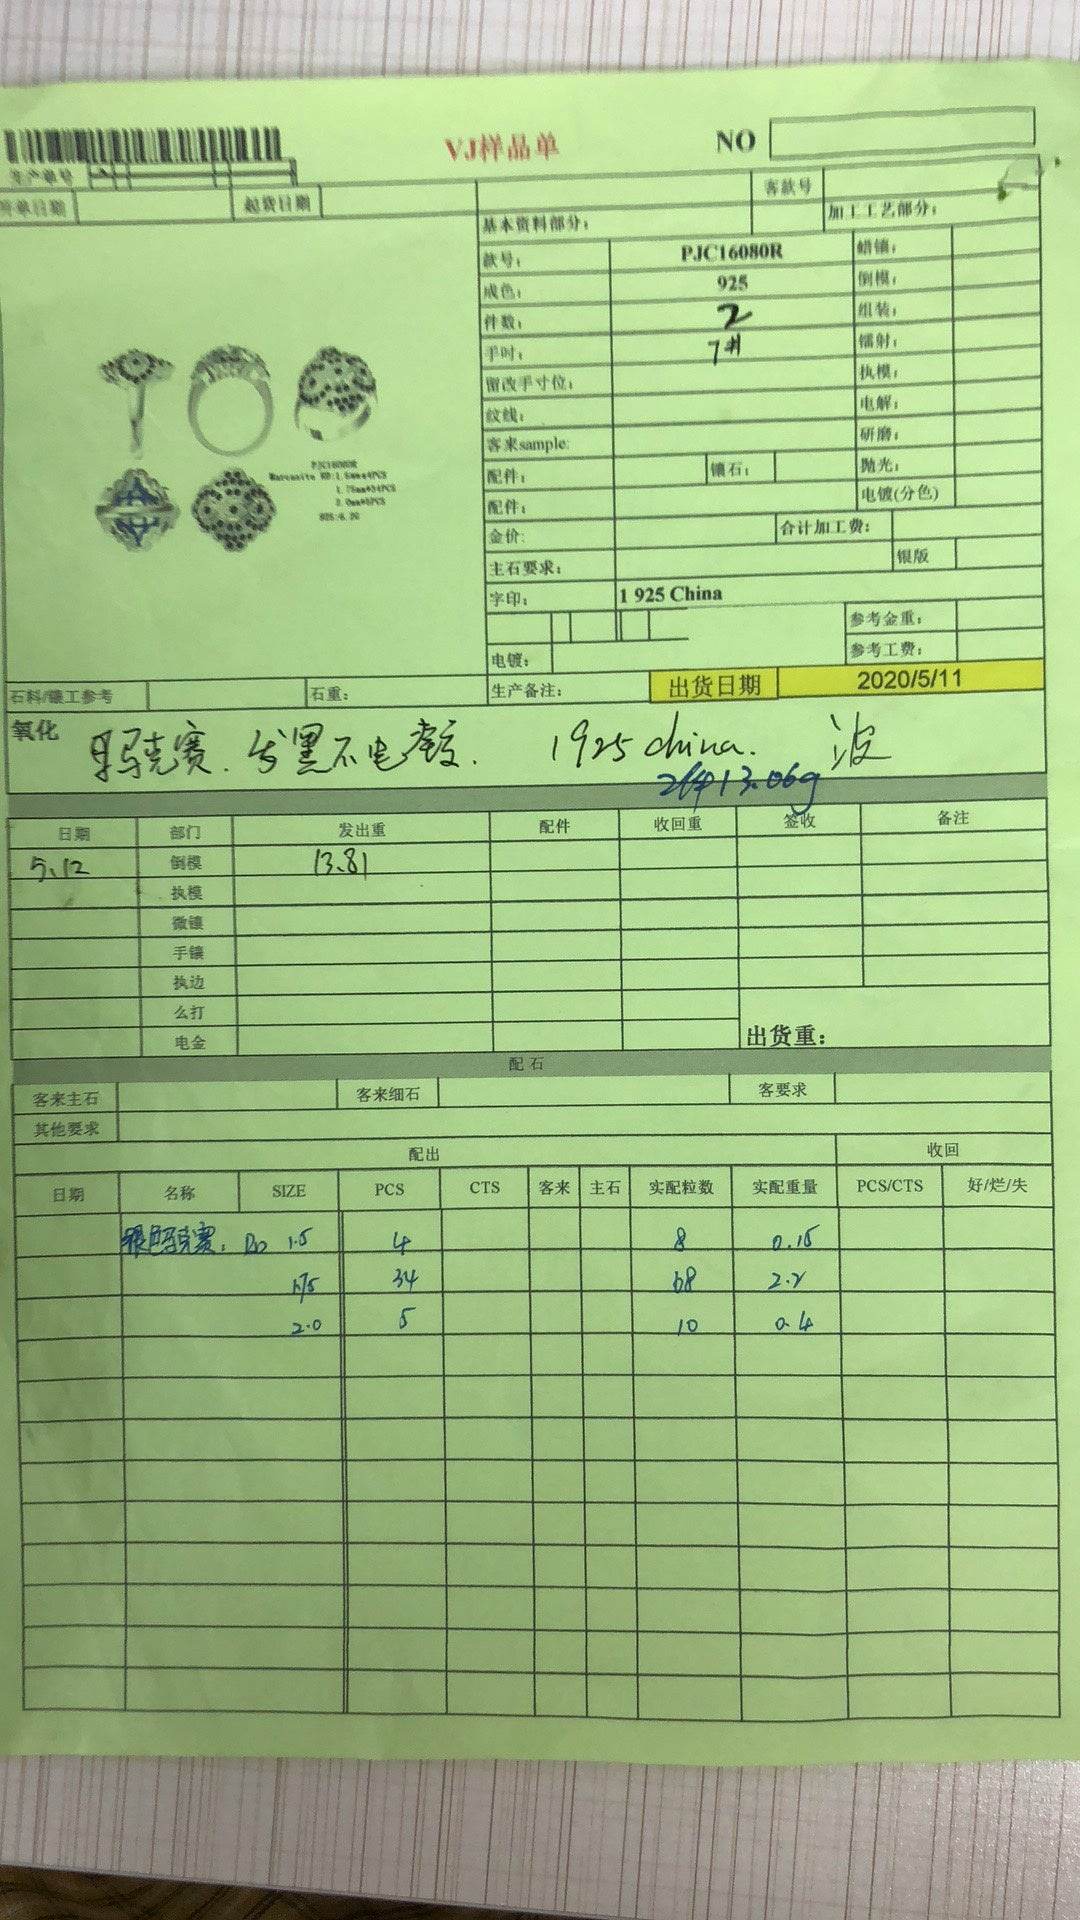 VJ样品单
NO
生产单号
开单日期
起货日期
客款号
基本资料部分:
加工工艺部分:
款号: PJC16080R 蜡镶:
成色: 925 倒模:
件数: 2 组装:
手吋: 7# 镭射:
留改手寸位: 执模:
纹线: 电解:
客来sample: 研磨:
配件: 镶石: 抛光:
配件: 电镀(分色)
金价: 合计加工费:
主石要求: 银版
字印: 1 925 China
参考金重:
电镀: 参考工费:
PJC16080R
Marcasite RD:1.5mm*4PCS
1.75mm*34PCS
2.0mm*5PCS
石料/镶工参考 石重: 生产备注: 出货日期 2020/5/11
氧化
玛克赛. 发黑不电 1925 china. 波
2件13.06g
日期 部门 发出重 配件 收回重 签收 备注
5.12 倒模 13.81
执模
微镶
手镶
执边
么打
电金
出货重:
配石
客来主石 客来细石 客要求
其他要求
配出 收回
日期 名称 SIZE PCS CTS 客来 主石 实配粒数 实配重量 PCS/CTS 好/烂/失
银色玛克赛. RD 1.5 4 8 0.15
1.75 34 68 2.2
2.0 5 10 0.4